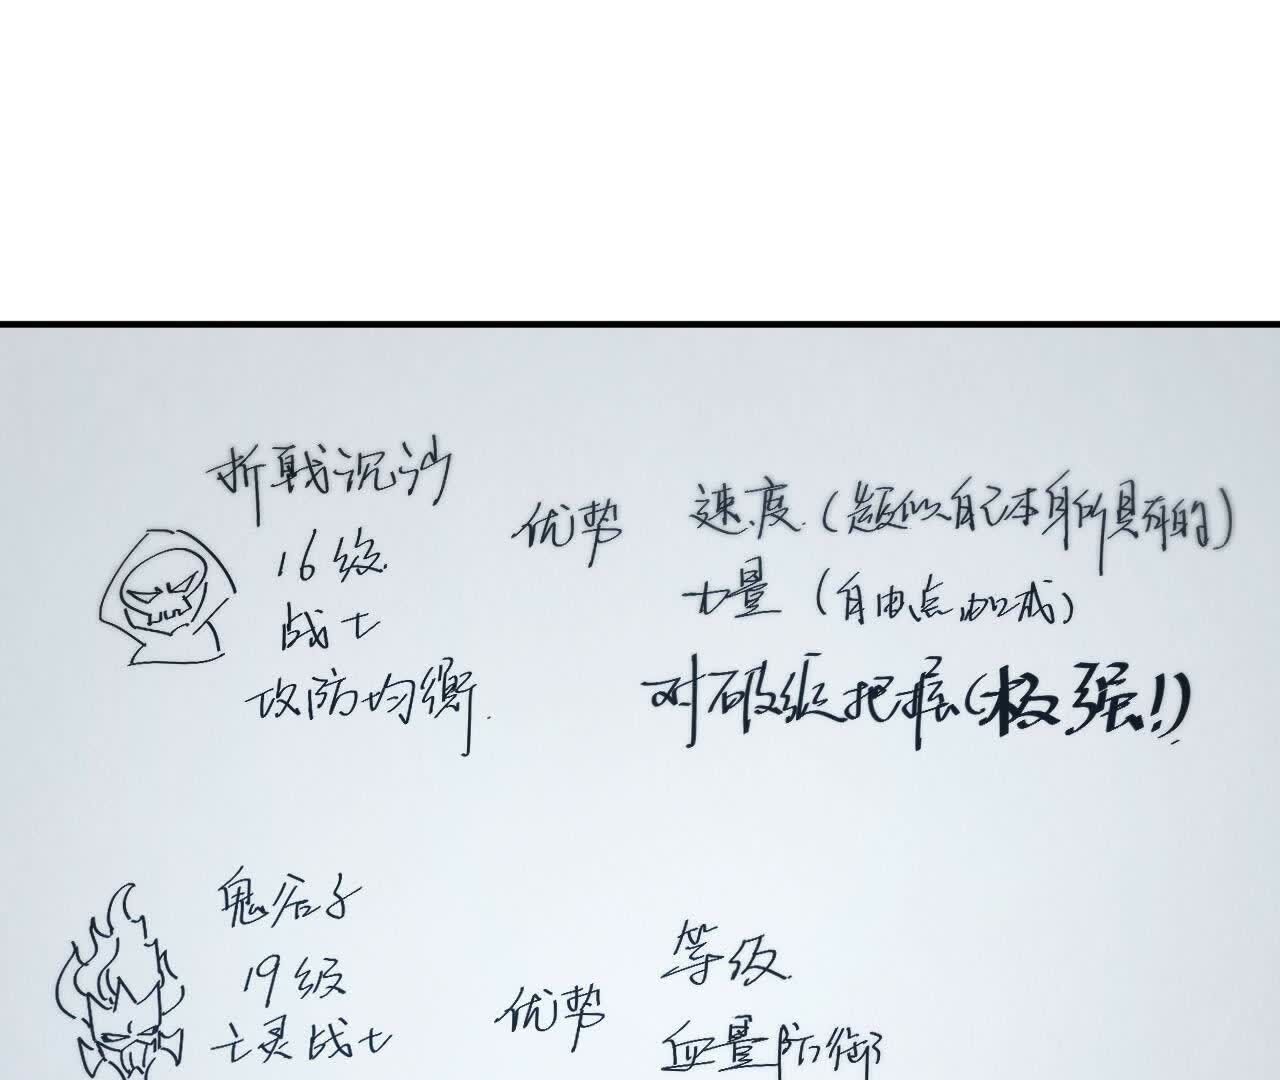 折戟沉沙
16级
战士
攻防均衡
优势
速度(类似自己本身所具有的)
力量(自由点加成)
对破绽把握(极强!)
鬼后子
19级
亡灵战士
优势
等级
血量防御